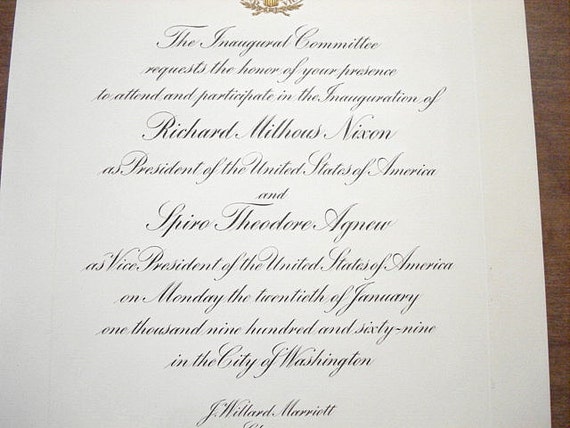 The Inaugural Committee
requests the honor of your presence
to attend and participate in the Inauguration of
Richard Milhous Nixon
as President of the United States of America
and
Spiro Theodore Agnew
as Vice President of the United States of America
on Monday the twentieth of January
one thousand nine hundred and sixty-nine
in the City of Washington
J. Willard Marriott